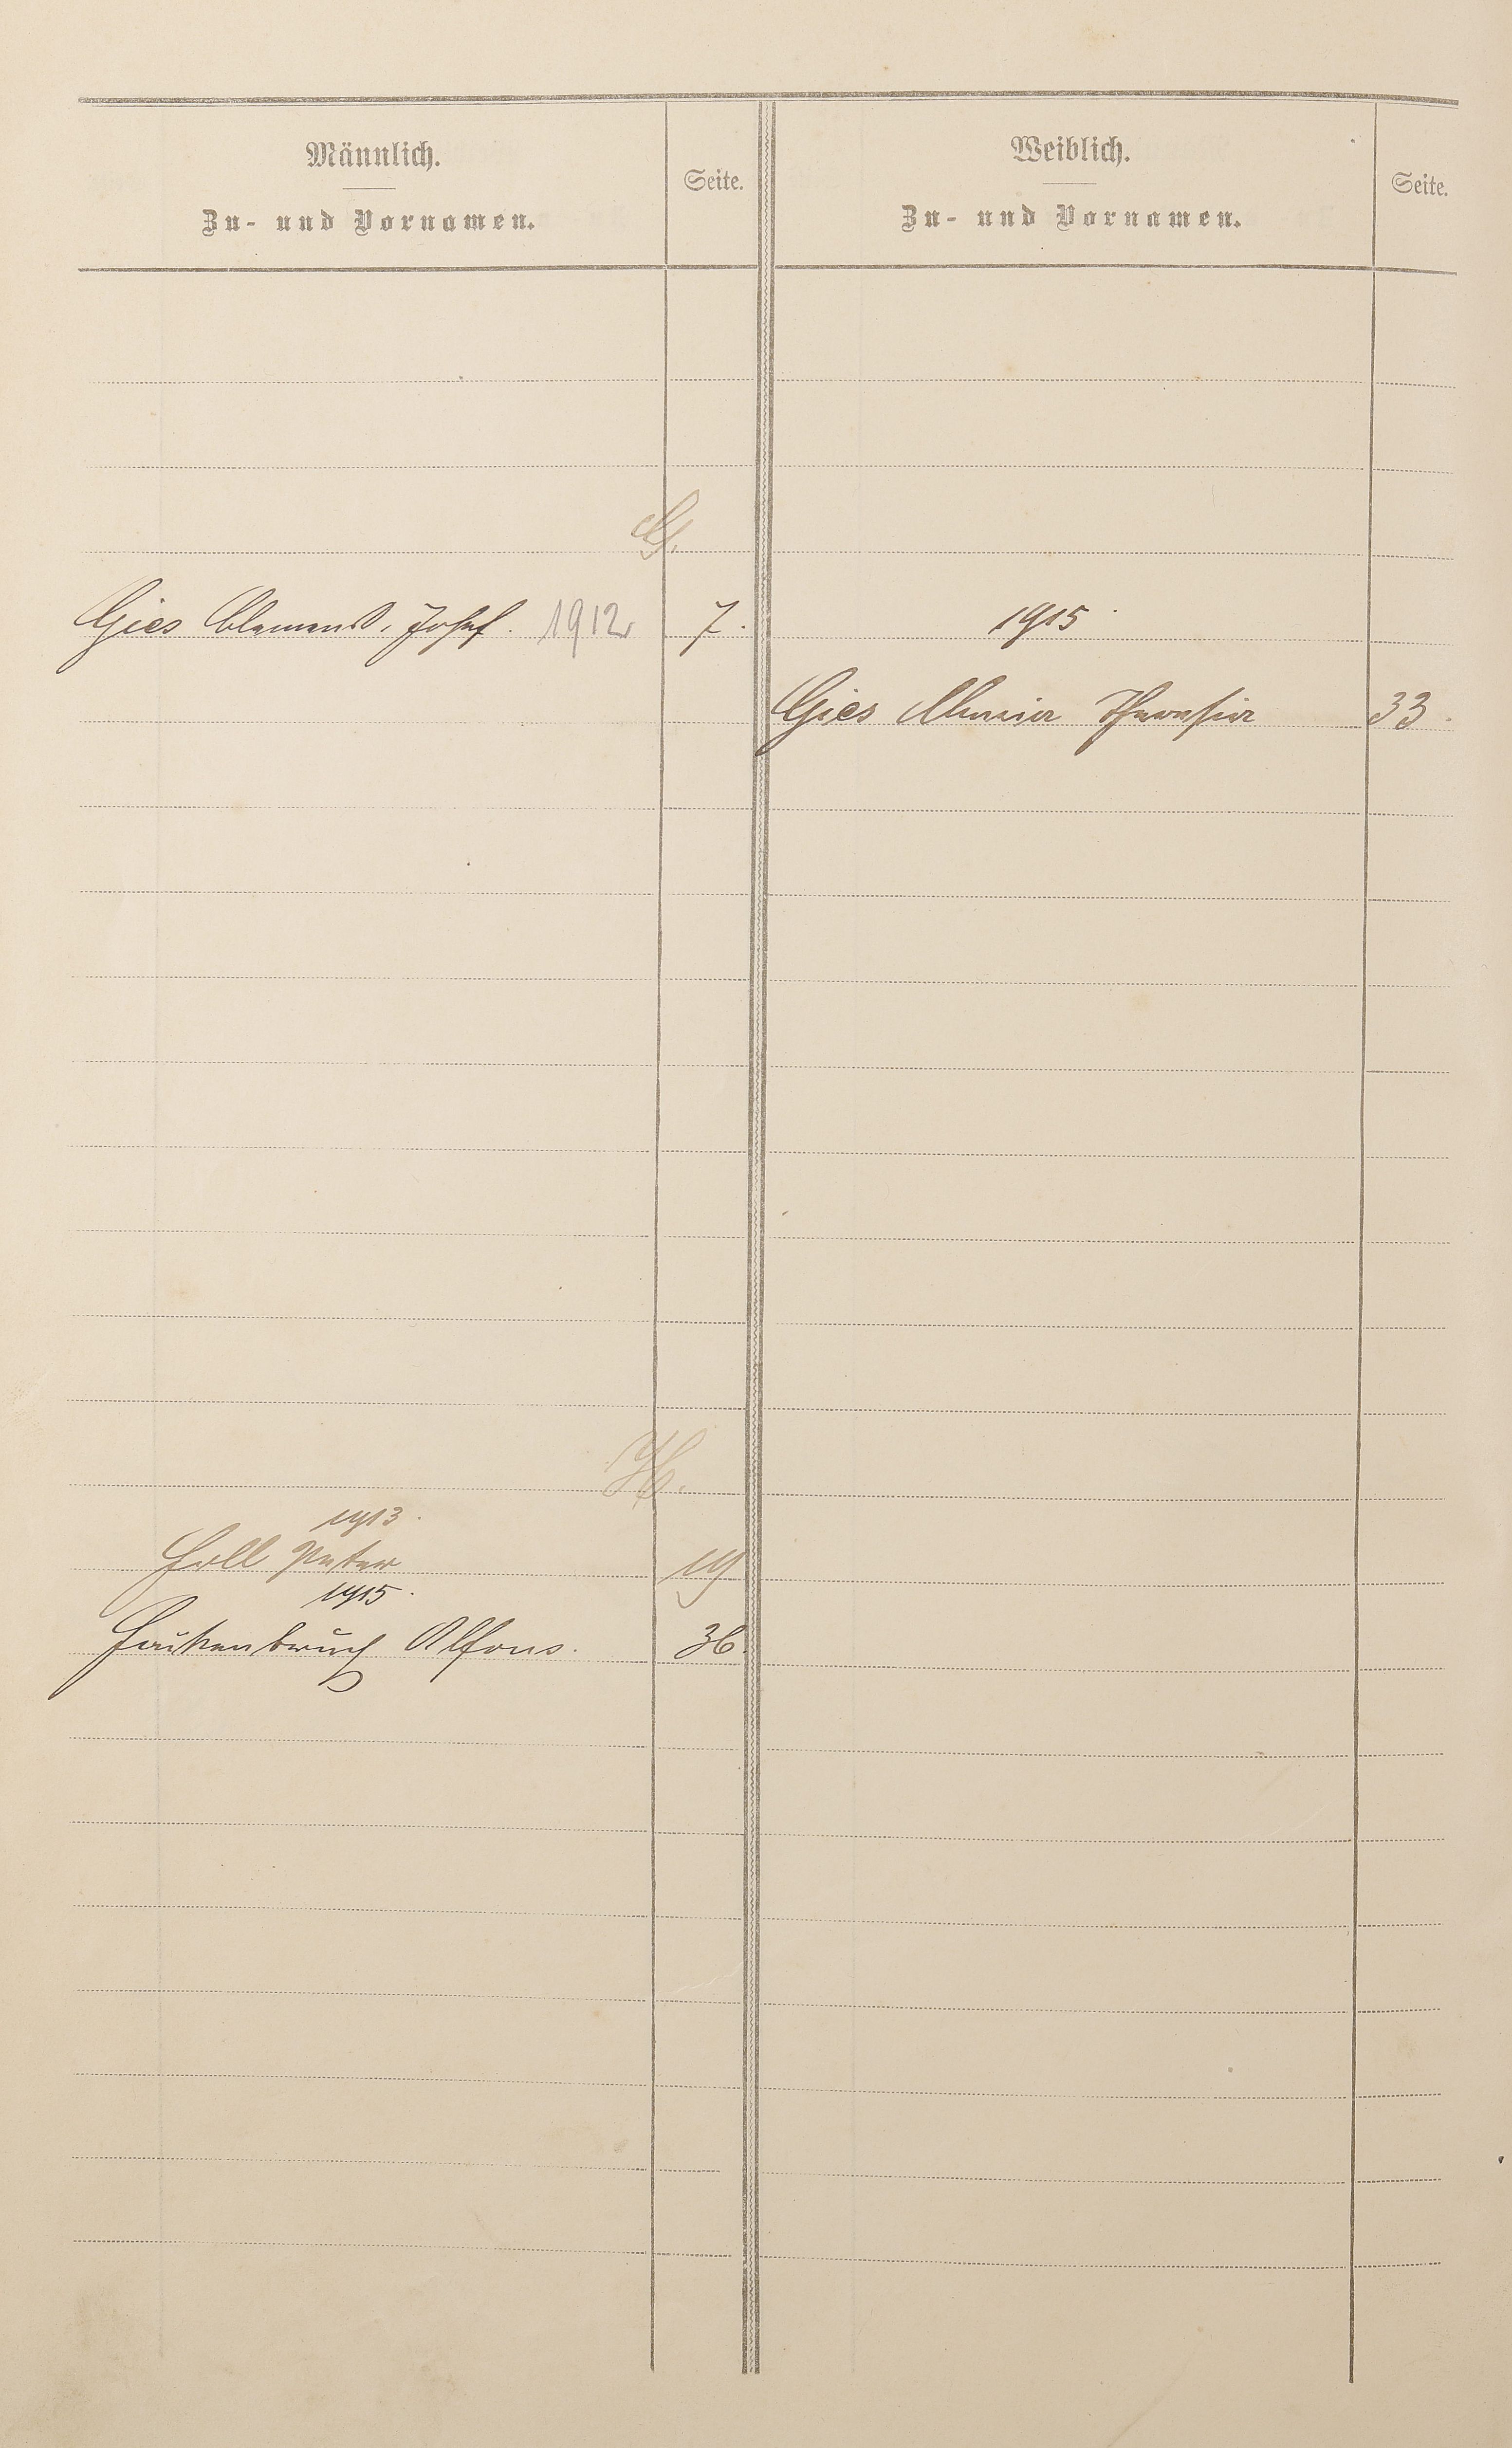 Männlich.
Zu- und Vornamen.
Seite.
Weiblich.
Zu- und Vornamen.
Seite.
G.
Gies Clemens, Josef. 1912
7.
1915
Gies Maria Theresia
33.
H.
1913.
Holl Peter
19
1915.
Hautzenbruch Alfons.
36.